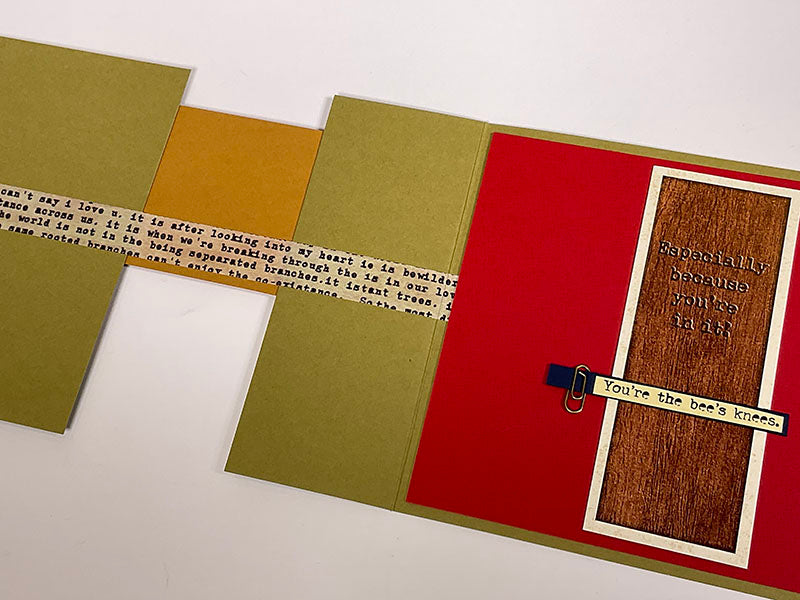 can't say i love u. it is after looking into my heart ie is bewilder
tance across us. it is when we're breaking through the is in our lov
the world is not in the being sepearated branches.it istant trees. i
same rooted branches can't enjoy the co-existance. So.the most d
Especially
because
you're
in it!
You're the bee's knees.